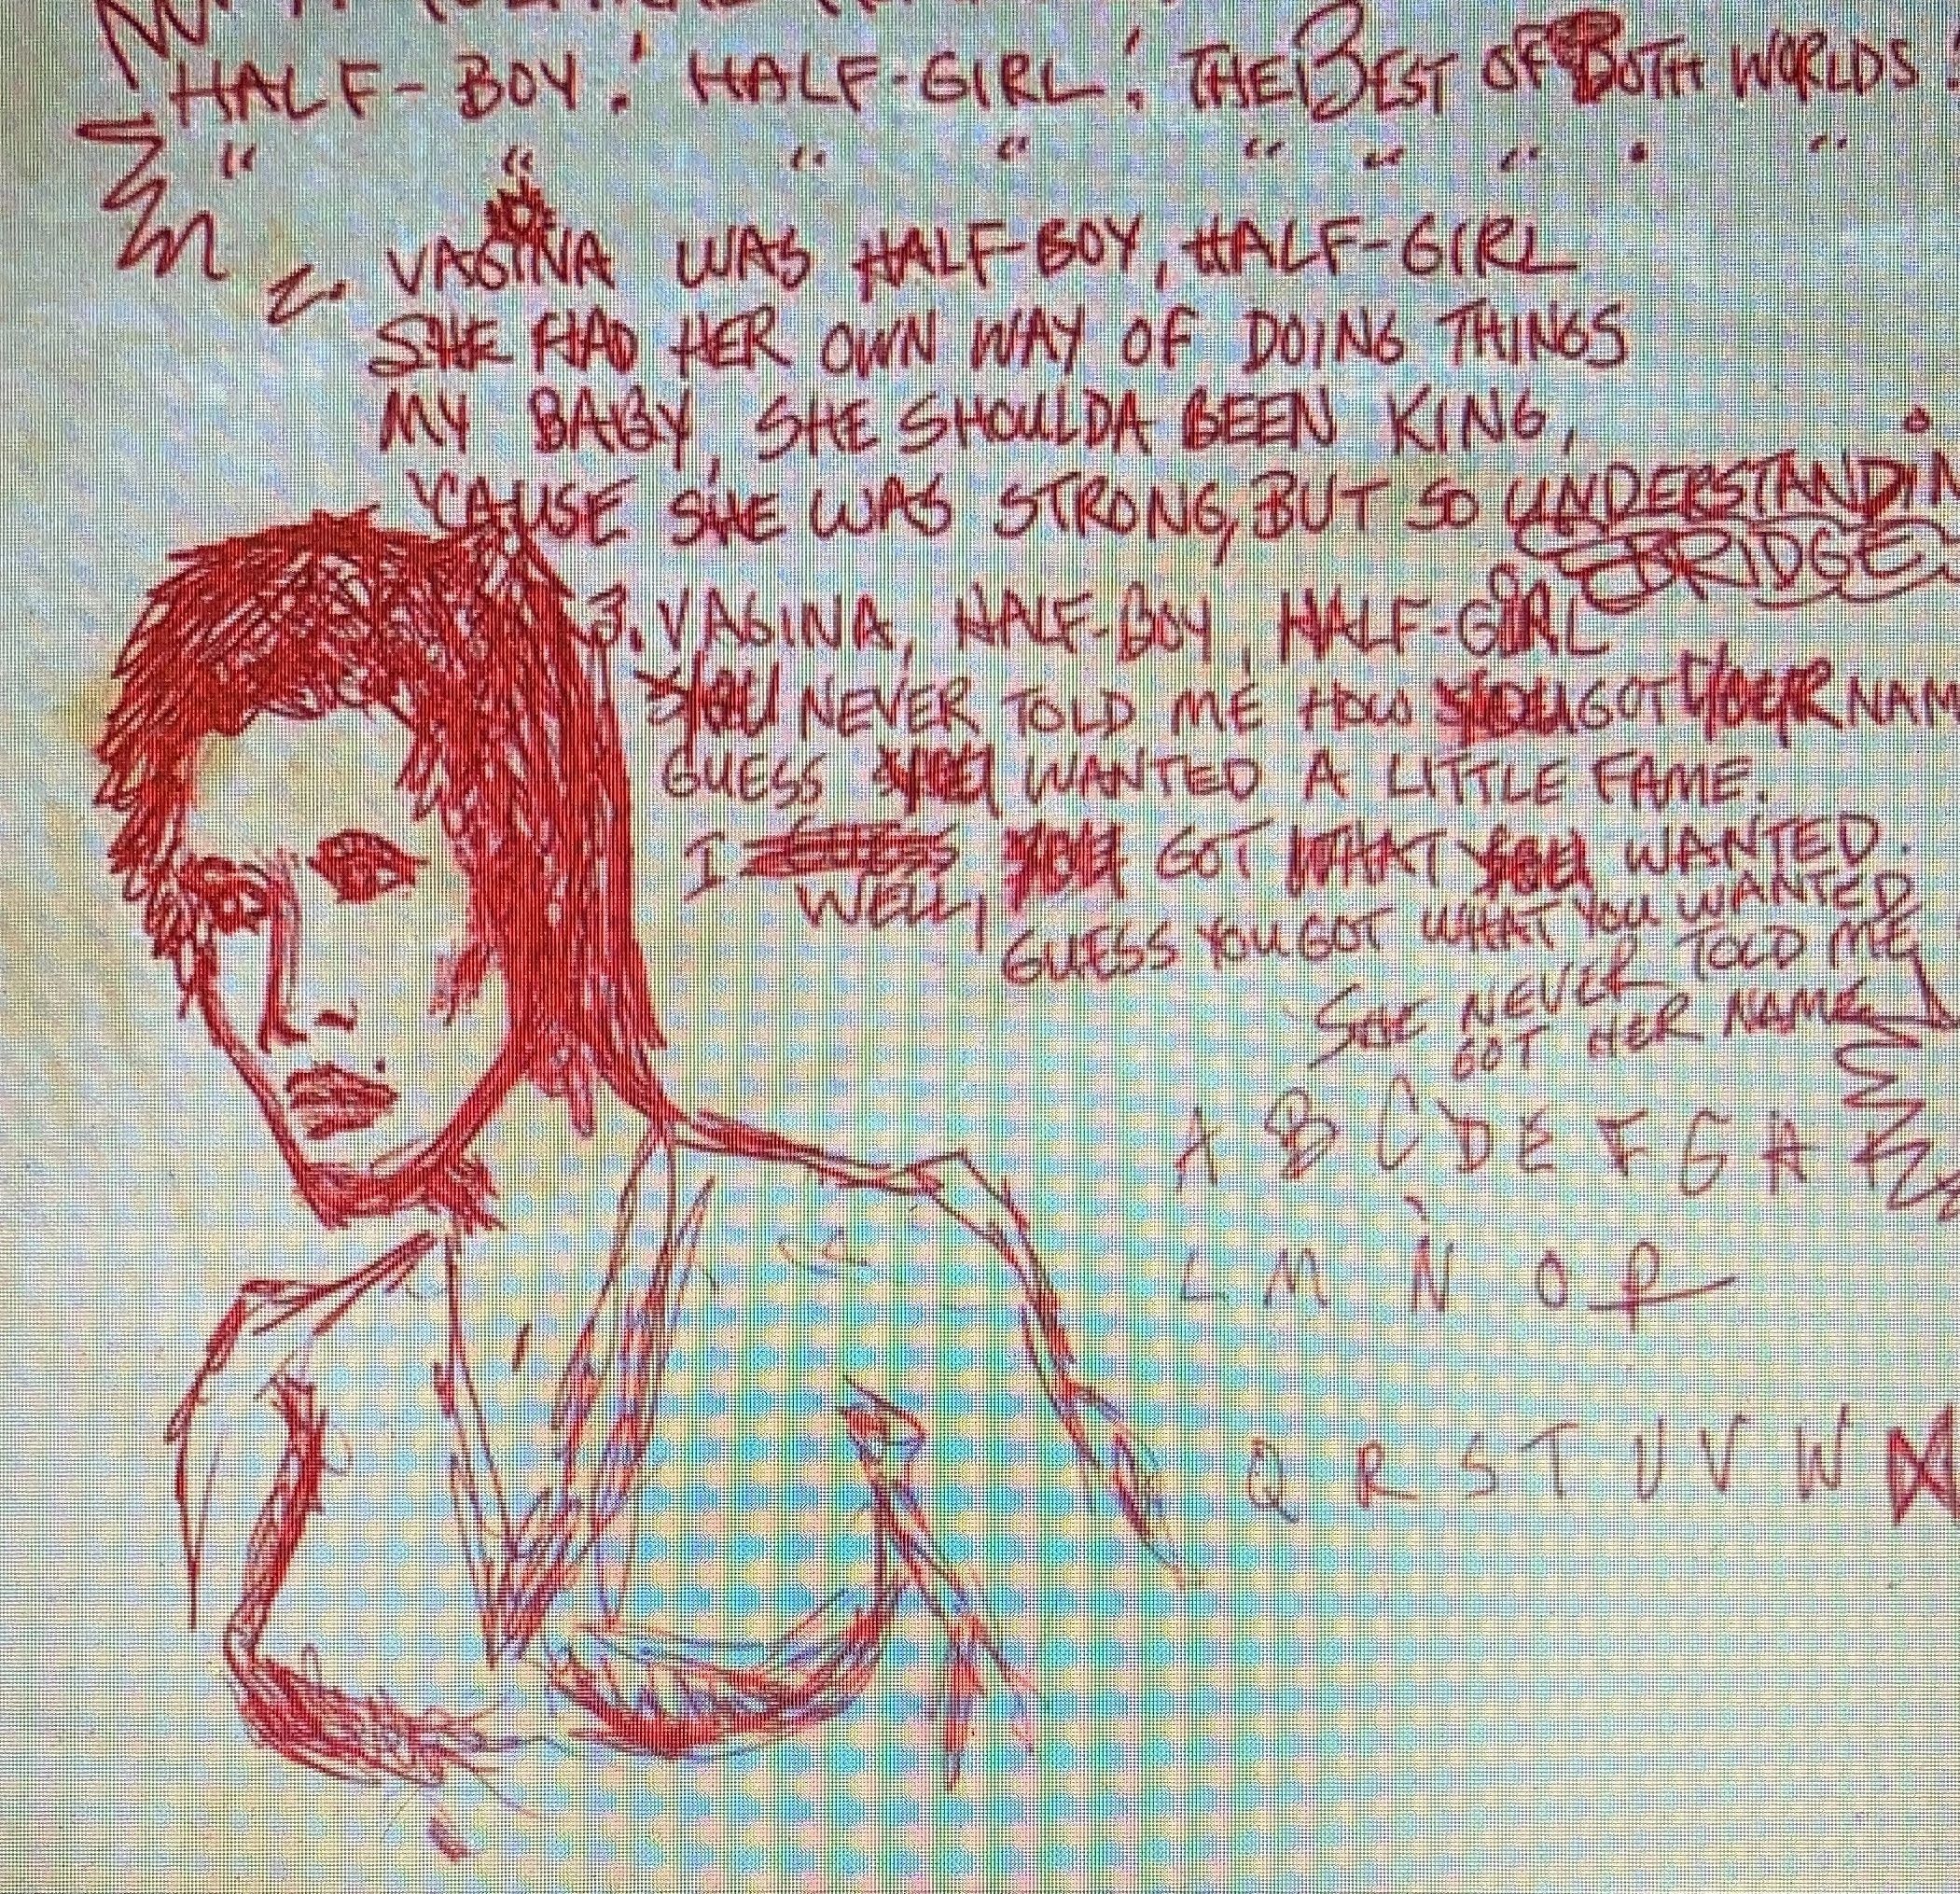 HALF-BOY! HALF-GIRL! THE BEST OF BOTH WORLDS
" " " " " " " " "
2. VAGINA WAS HALF-BOY, HALF-GIRL
SHE HAD HER OWN WAY OF DOING THINGS
MY BABY, SHE SHOULDA BEEN KING,
'CAUSE SHE WAS STRONG, BUT SO UNDERSTANDIN
BRIDGE
3. VAGINA, HALF-BOY, HALF-GIRL
YOU NEVER TOLD ME HOW YOU GOT YOUR NAM
GUESS YOU WANTED A LITTLE FAME.
I GUESS YOU GOT WHAT YOU WANTED.
WELL,
GUESS YOU GOT WHAT YOU WANTED
SHE NEVER TOLD ME
GOT HER NAME
A B C D E F G H
L M N O P
Q R S T U V W X